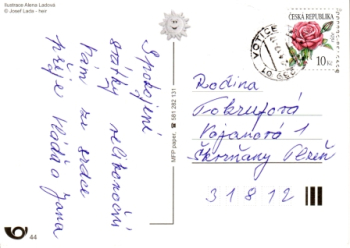 Ilustrace Alena Ladová
© Josef Lada - heir
Spokojené
svátky velikonoční
Vám ze srdce
přeje Vláďa a Jana
44
MFP paper 581 282 131
VOTICE
ČESKÁ REPUBLIKA
10 Kč
Rodina
Tokrufová
Vojanova 1
Škvrňany Plzeň
31812